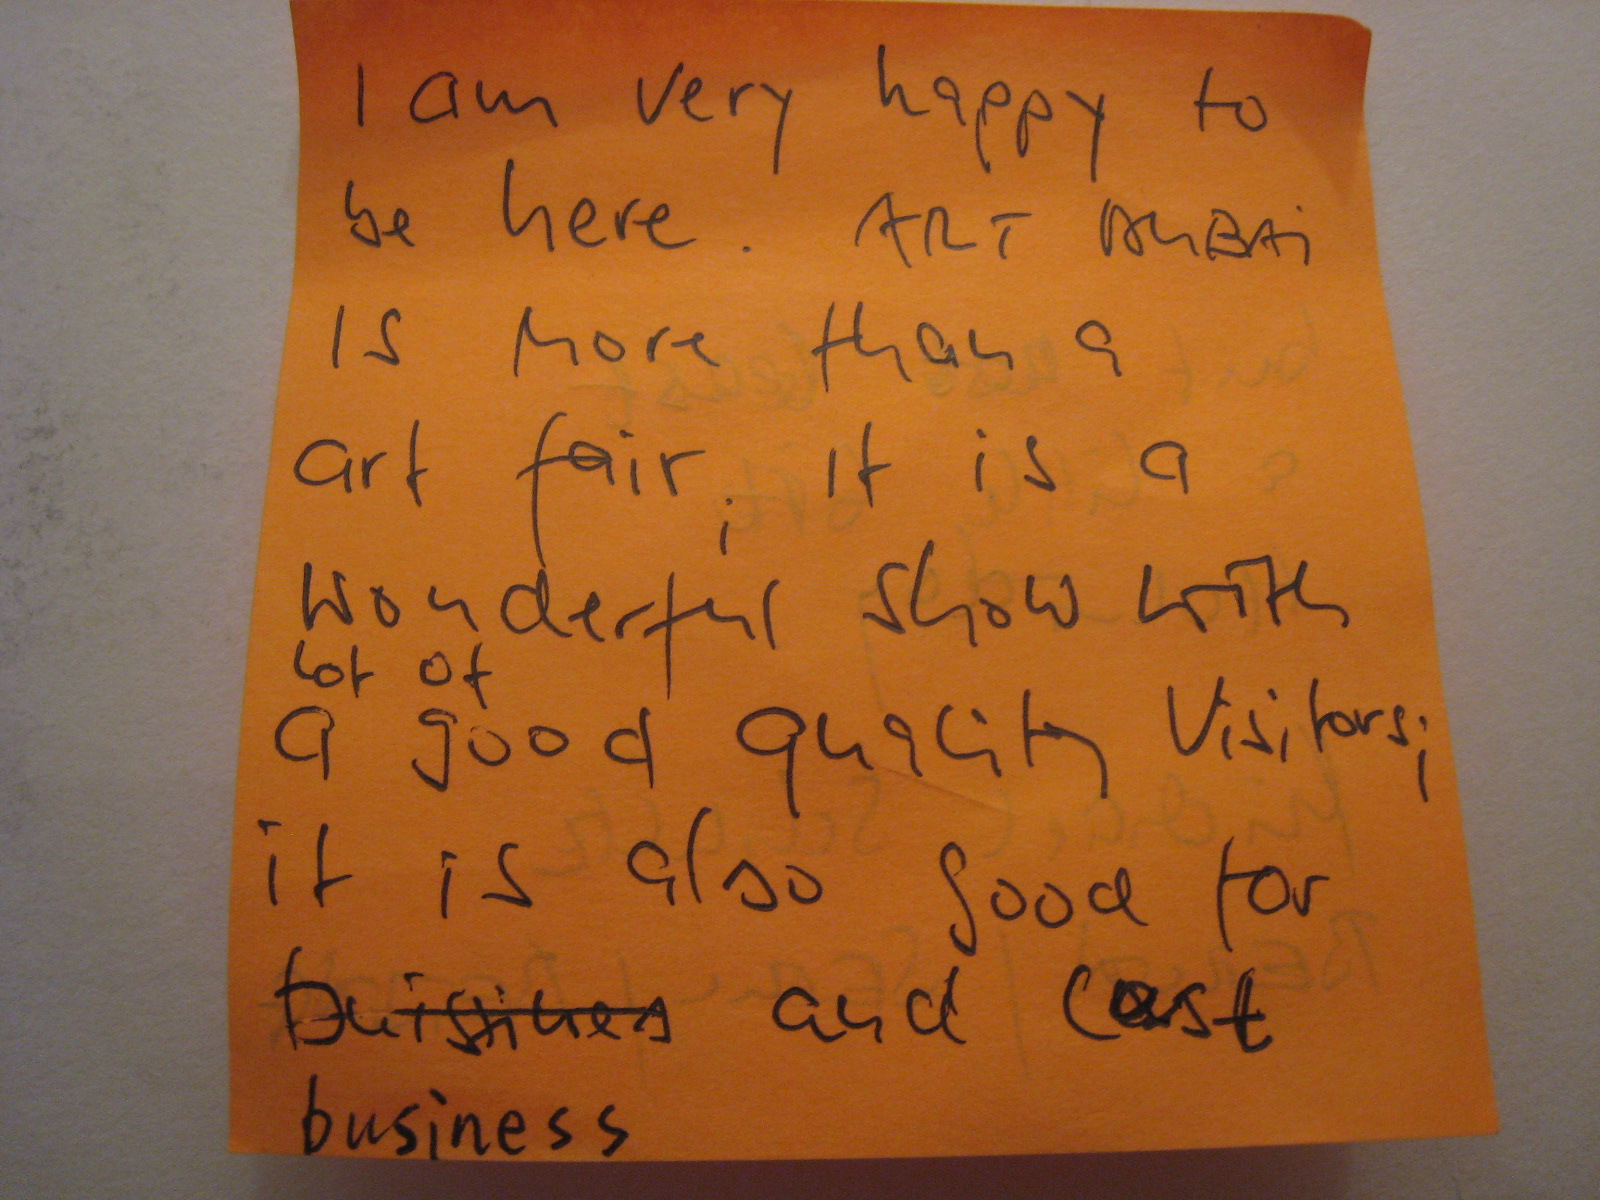 I am very happy to
be here. ART DUBAi
is more than a
art fair, it is a
wonderful show with
lot of
a good quality visitors;
it is also good for
buissines and cost
business